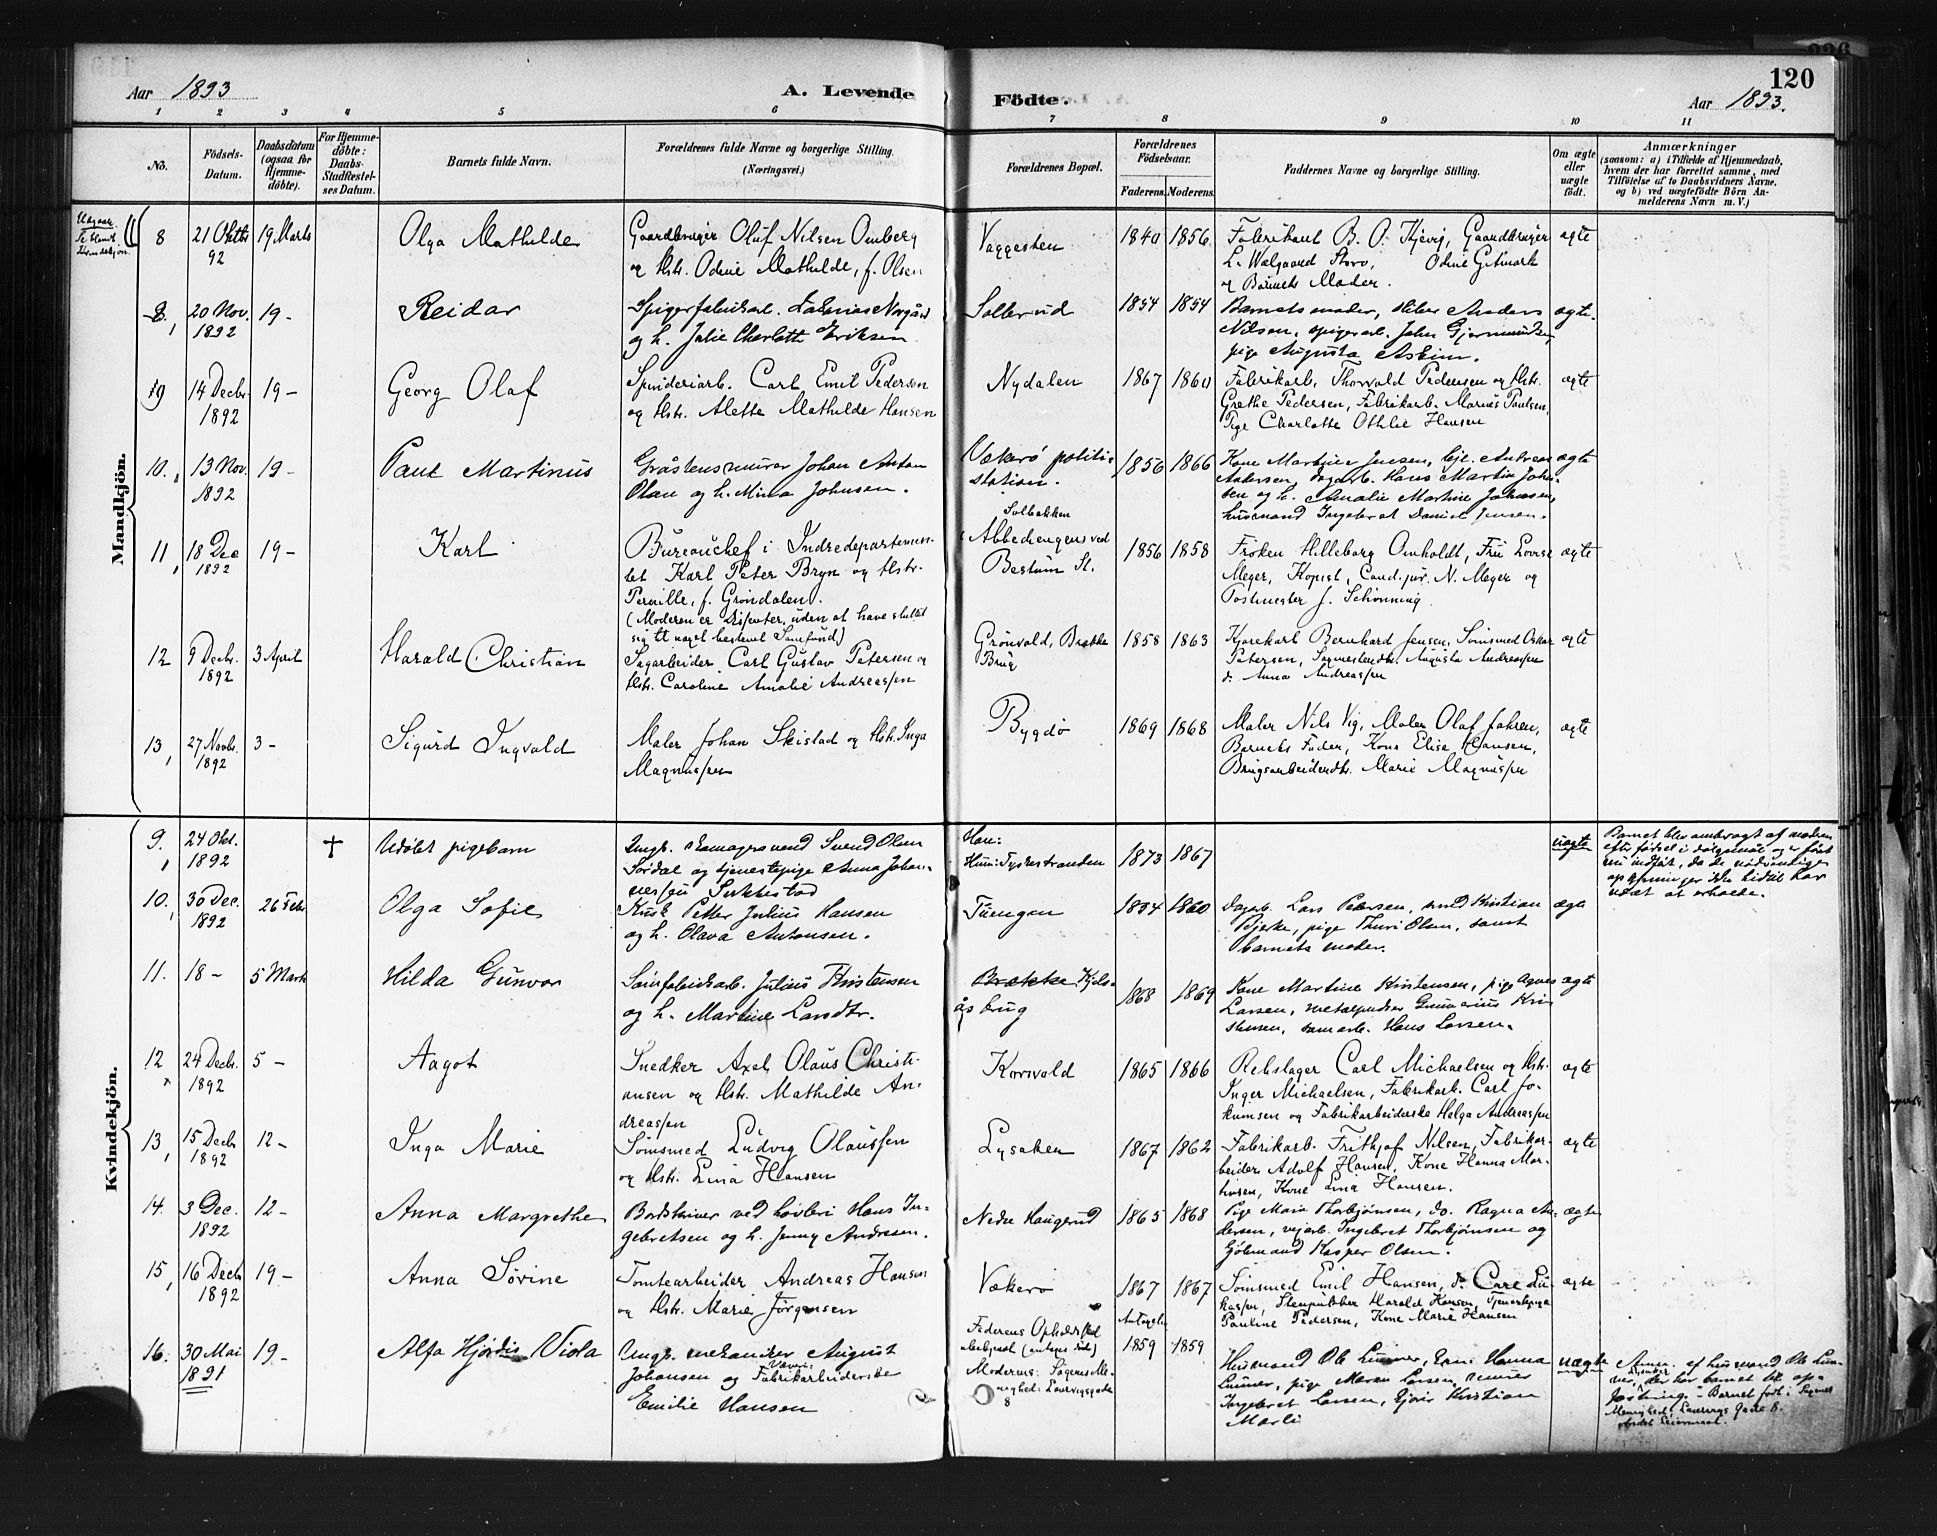 Aar 1893
A. Levende
Födte.
120
Aar 1893.
1 2 3 4 5 6 7 8 9 10 11
No.
Födsels-
Datum.
Daabsdatum
(ogsaa for
Hjemme-
döbte).
For Hjemme-
döbte:
Daabs-
Stadfæstel-
ses Datum.
Barnets fulde Navn.
Forældrenes fulde Navne og borgerlige Stilling.
(Næringsvei.)
Forældrenes Bopæl.
Forældrenes
Födselsaar.
Faderens. Moderens.
Faddernes Navne og borgerlige Stilling.
Om ægte
eller
uægte
födt.
Anmærkninger
(saasom: a) i Tilfælde af Hjemmedaab,
hvem der har forrettet samme, med
Tilföielse af to Daabsvidners Navne,
og b) ved uægtefödte Börn An-
melderens Navn m. V.)
Mandkjön.
Udgaar.
Se blandt
Kvindekjøn.
8 21 Oktbr 92 19 Marts
Olga Mathilde
Gaardbruger Oluf Nilsen Omberg
og Hstr. Odine Mathilde, f. Olsen
Vaggesten
1840 1856
Fabrikant B. O. Kjevig, Gaardbruger
L. Walgaard Storo, Odine Getmark
og Barnets Moder.
ægte
8. 20 Nov. 1892 19-
Reidar
Spigerfabrikarb. Zakarias Norgård
og h. Julie Charlotte Eriksen
Sollerud
1854 1854
Barnets moder, sliber Anders
Nilsen, spigerarb. John Gjermundsen,
pige Augusta Askim.
ægte.
9 14 Decbr 1892 19-
Georg Olaf
Spinderiarb. Carl Emil Pedersen
og Hstr. Alette Mathilde Hansen
Nydalen
1867 1860
Fabrikarb. Thorvald Pedersen og Hstr.
Grethe Pedersen, Fabrikarb. Marius Paulsen,
Pige Charlotte Othlie Hansen
ægte
10. 13 Nov. 1892 19-
Paul Martinus
Gråstensmurer Johan Anton
Olsen og h. Mina Johnsen.
Vækerö politi-
station.
1856 1866
Kone Martine Jensen, Andreas
Andersen, dagarb. Hans Martin John-
sen og h. Amalie Martine Johnsen,
husmand Ingebret Daniel Jensen.
ægte
11, 18 Dec 1892 19-
Karl
Bureauchef i Indredepartemen-
tet Karl Peter Bryn og Hstr.
Pernille, f. Gröndalen.
(Moderen er Dissenter, uden at have sluttet
sig til noget bestemt Samfund)
Solbakken
Abbediengen ved
Bestum St.
1856 1858
Frøken Hilleborg Omholdt, Fru Lovise
Meyer, Kopist, Cand. jur. N. Meyer og
Postmester J. Schönning.
ægte
12 9 Decbr. 1892 3 April
Harald Christian
Sagarbeider Carl Gustav Petersen og
Hstr. Caroline Amalie Andreassen
Grönvold, Brække
Brug
1858 1863
Kjørekarl Bernhard Jensen, Sömsmed Oskar
Petersen, Augusta Andreassen
d. Anna Andreassen
ægte
13, 27 Novbr. 1892 3-
Sigurd Ingvald
Maler Johan Skistad og Hstr. Inga
Magnussen
Bygdö
1869 1868
Maler Nils Vig, Maler Olaf Johsen,
Barnets Fader, Kone Elise Hansen,
Brugsarbeiderdtr. Marie Magnussen
ægte
Kvindekjön.
9. 24 Okt. 1892 †
Udøbt pigebarn
Ungk. skomagersvend Svend Olsen
Sørdal og tjenestepige Anna Johan-
nessen Sirkistad
Han:
Hun: Tyskestranden
1873 1867
uægte
Barnet blev ombragt af moderen
efter fødsel i dølgsmaal og er først
nu indført, da de nødvendige
oplysninger ikke hidtil har
været at erholde.
10. 30 Dec. 1892 26 Febr
Olga Sofie
Kusk Petter Julius Hansen
og h. Olava Antonsen.
Tuengen
1834 1860
Dagarb. Lars Petersen, smed Kristian
Bjerke, pige Thuri Olsen, samt
barnets moder.
ægte
11. 18- 5 Marts
Hilda Gunvor
Sömfabrikarb. Julius Kristensen
og h. Martine Larsdtr.
Brække Kjels-
ås brug
1868 1869
Kone Martine Kristensen, pige Agnes
Larsen, metalpudser Gunerius Kri-
stensen, sømarb. Hans Larsen.
ægte
12 24 Decbr. 1892 5-
Aagot
Snedker Axel Olaus Christi-
ansen og Hstr. Mathilde An-
dreassen
Korsvold
1865 1866
Rebslager Carl Michaelsen og Hstr.
Inger Michaelsen, Fabrikarb. Carl Jo-
kumsen og Fabrikarbeiderske Helga Andreassen
ægte
13, 15 Decbr 1892 12-
Inga Marie
Sömsmed Ludvig Olaussen
og Hstr. Lina Hansen
Lysaker
1867 1862
Fabrikarb. Frithjof Nilsen, Fabrikar-
beider Adolf Hansen, Kone Hanna Mar-
tinsen, Kone Lina Hansen.
ægte
14. 3 Dec. 1892 12-
Anna Margrethe
Bordskriver ved høvleri Hans In-
gebretsen og h. Jenny Andresen.
Nedre Haugerud
1865 1868
Pige Maria Thorbjönsen, do. Ragna An-
dersen, veiarb. Ingebret Thorbjönsen og
Gjölmand Kasper Olsen.
ægte
15, 16 Decbr 1892 19-
Anna Sörine
Tomtearbeider Andreas Hansen
og Hstr. Marie Jörgensen
Vækerö
1867 1867
Sömsmed Emil Hansen, do Carl Lu-
kassen, Stenpukker Harald Hansen, Tjenestepige
Pauline Pedersen, Kone Marie Hansen
ægte
16. 30 Mai 1891 19-
Alfa Hjördis Viola
Ungk. mekaniker August
Johansen og Væveri-
Fabrikarbeiderske
Emilie Hansen
Faderens Opholdssted
ubekjendt (antages død)
Moderens: Sagenes Me-
nighed: Laurvigsgade
8
Antagelig
1859 1859
Husmand Ole Lunner, Hanna
Lunner, pige Maren Larsen, snekker
Ingebret Larsen, Kristian
Marli
uægte
Anm. af husmand Ole Lun-
ner, Lysaker, der har barnet til op-
fostring. - Barnet født i Sagenes
Menighed: Laurvigs Gade 8.
Andet Leiermaal.